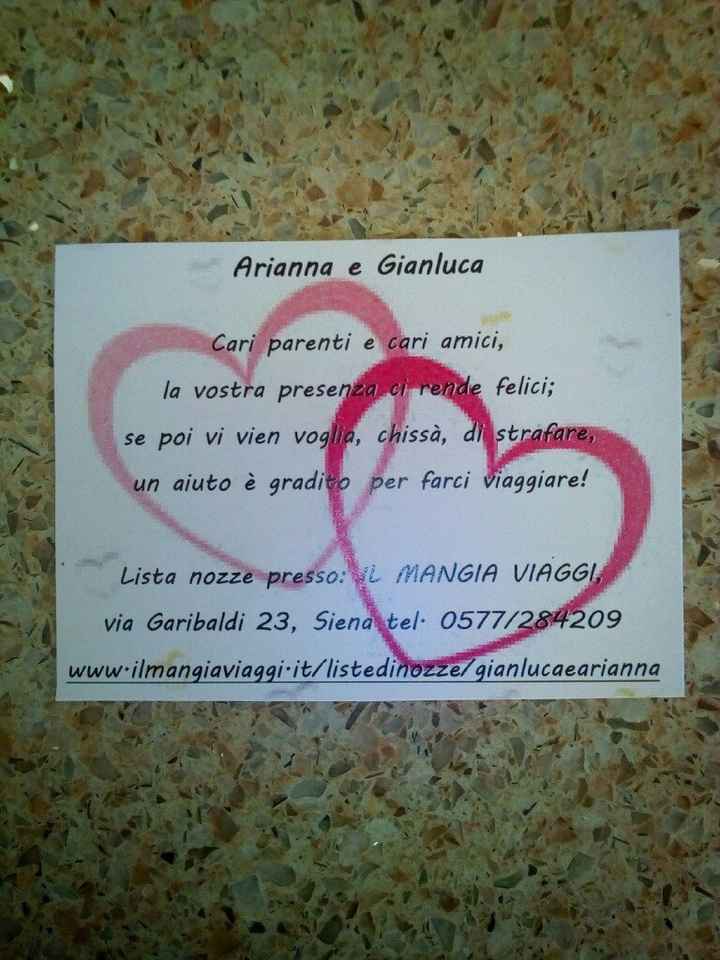 Arianna e Gianluca
Cari parenti e cari amici,
la vostra presenza ci rende felici;
se poi vi vien voglia, chissà, di strafare,
un aiuto è gradito per farci viaggiare!
Lista nozze presso: IL MANGIA VIAGGI,
via Garibaldi 23, Siena tel. 0577/284209
www.ilmangiaviaggi.it/listedinozze/gianlucaearianna